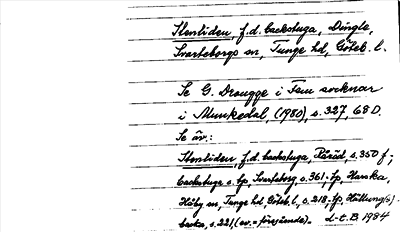 Stenliden, f.d. backstuga, Dingle,
Svarteborgs sn, Tunge hd, Göteb. l.
Se G. Drougge i Fem socknar
i Munkedal, (1980), s. 327, 68 D.
Se äv.:
Stenliden, f.d. backstuga, s. 350 f;
backstuga o. tp, Svarteborg, s. 361; tp, Hanska,
Håby sn, Tunge hd, Göteb. l, s. 218; tp,
backa, s. 221 (ev. = föregående). 1984